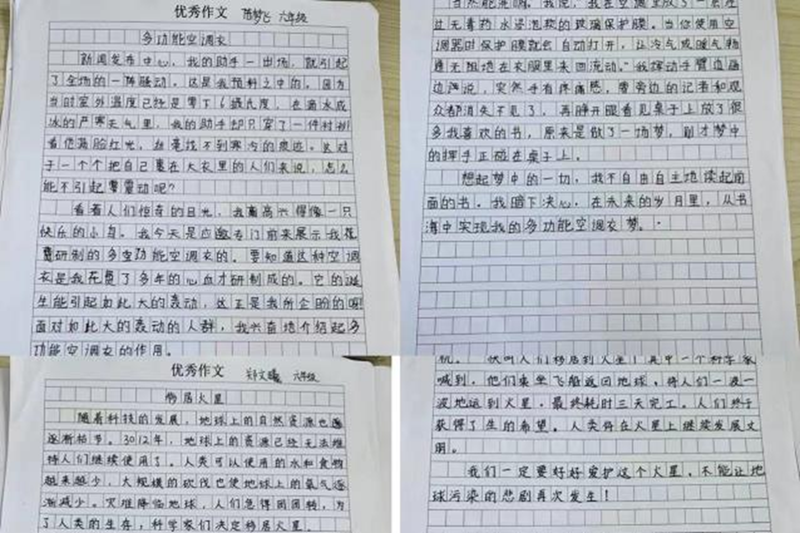 优秀作文 苗梦飞 六年级
多功能空调衣
新闻发布中心,我的助手一出场,就引起
了全场的一阵骚动。这是我预料之中的。因为
当时室外温度已经是零下6摄氏度,在滴水成
冰的严寒天气里,我的助手却只穿了一件衬衫
看他满脸红光,丝毫找不到寒冷的痕迹。这对
于一个个把自己裹在大衣里的人们来说,怎么
能不引起轰动呢?
看着人们惊奇的目光,我高兴得像一只
快乐的小鸟。我今天是应邀专门前来展示我花
费研制的多功能空调衣的。要知道这种空调
衣是我花费了多年的心血才研制成的。它的诞
生能引起如此大的轰动,这正是我所企盼的呀
面对如此大的轰动的人群,我兴奋地介绍起多
功能空调衣的作用。
过无毒药水浸泡软的玻璃保护膜。当你使用空
调器时保护膜就会自动打开,让冷气或暖气畅
通无阻地在衣服里来回流动。”我挥动手臂边画
边说,突然手有疼痛感,带旁边的记者和观
众都消失不见了,再睁开眼看见桌子上放了很
多我喜欢的书,原来是做了一场梦,刚才梦中
的挥手正碰在桌子上。
想起梦中的一切,我不自由自主地读起前
面的书。我暗下决心,在未来的岁月里,从书
海中实现我的多功能空调衣梦。
优秀作文 郑文曦 六年级
移居火星
随着科技的发展,地球上的自然资源也逐
逐渐枯竭。3012年,地球上的资源已经无法维
持人们继续使用了。人类可以使用的水和食物
越来越少,大规模的砍伐也使地球上的氧气逐
渐减少。灾难降临地球,人们急得团团转,为
了人类的生存,科学家们决定移居火星。
机。 快叫人们移居到火星!其中一个科学家
喊到,他们乘坐飞船返回地球,将人们一波一
波地运到火星,最终耗时三天完工。人们终于
获得了生的希望。人类将在火星上继续发展文
明。
我们一定要好好爱护这个火星,不能让地
球污染的悲剧再次发生!